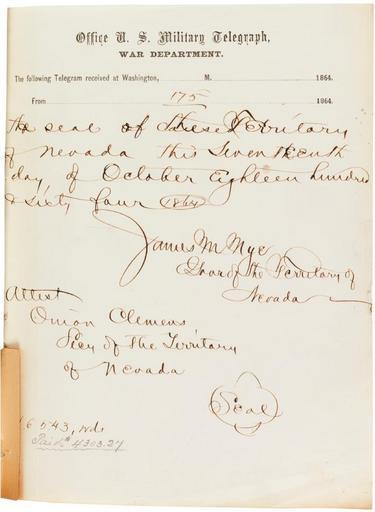 Office U. S. Military Telegraph,
WAR DEPARTMENT.
The following Telegram received at Washington, M. 1864.
From 175 1864.
the seal of these Territory
of Nevada this Seventeenth
day of October Eighteen hundred
& sixty four (1864)
James M Nye
Gvor of the Territory of
Nevada
Attest
Orion Clemens
Secy of the Territory
of Nevada
Seal
16543, wds
Paid $4303.27